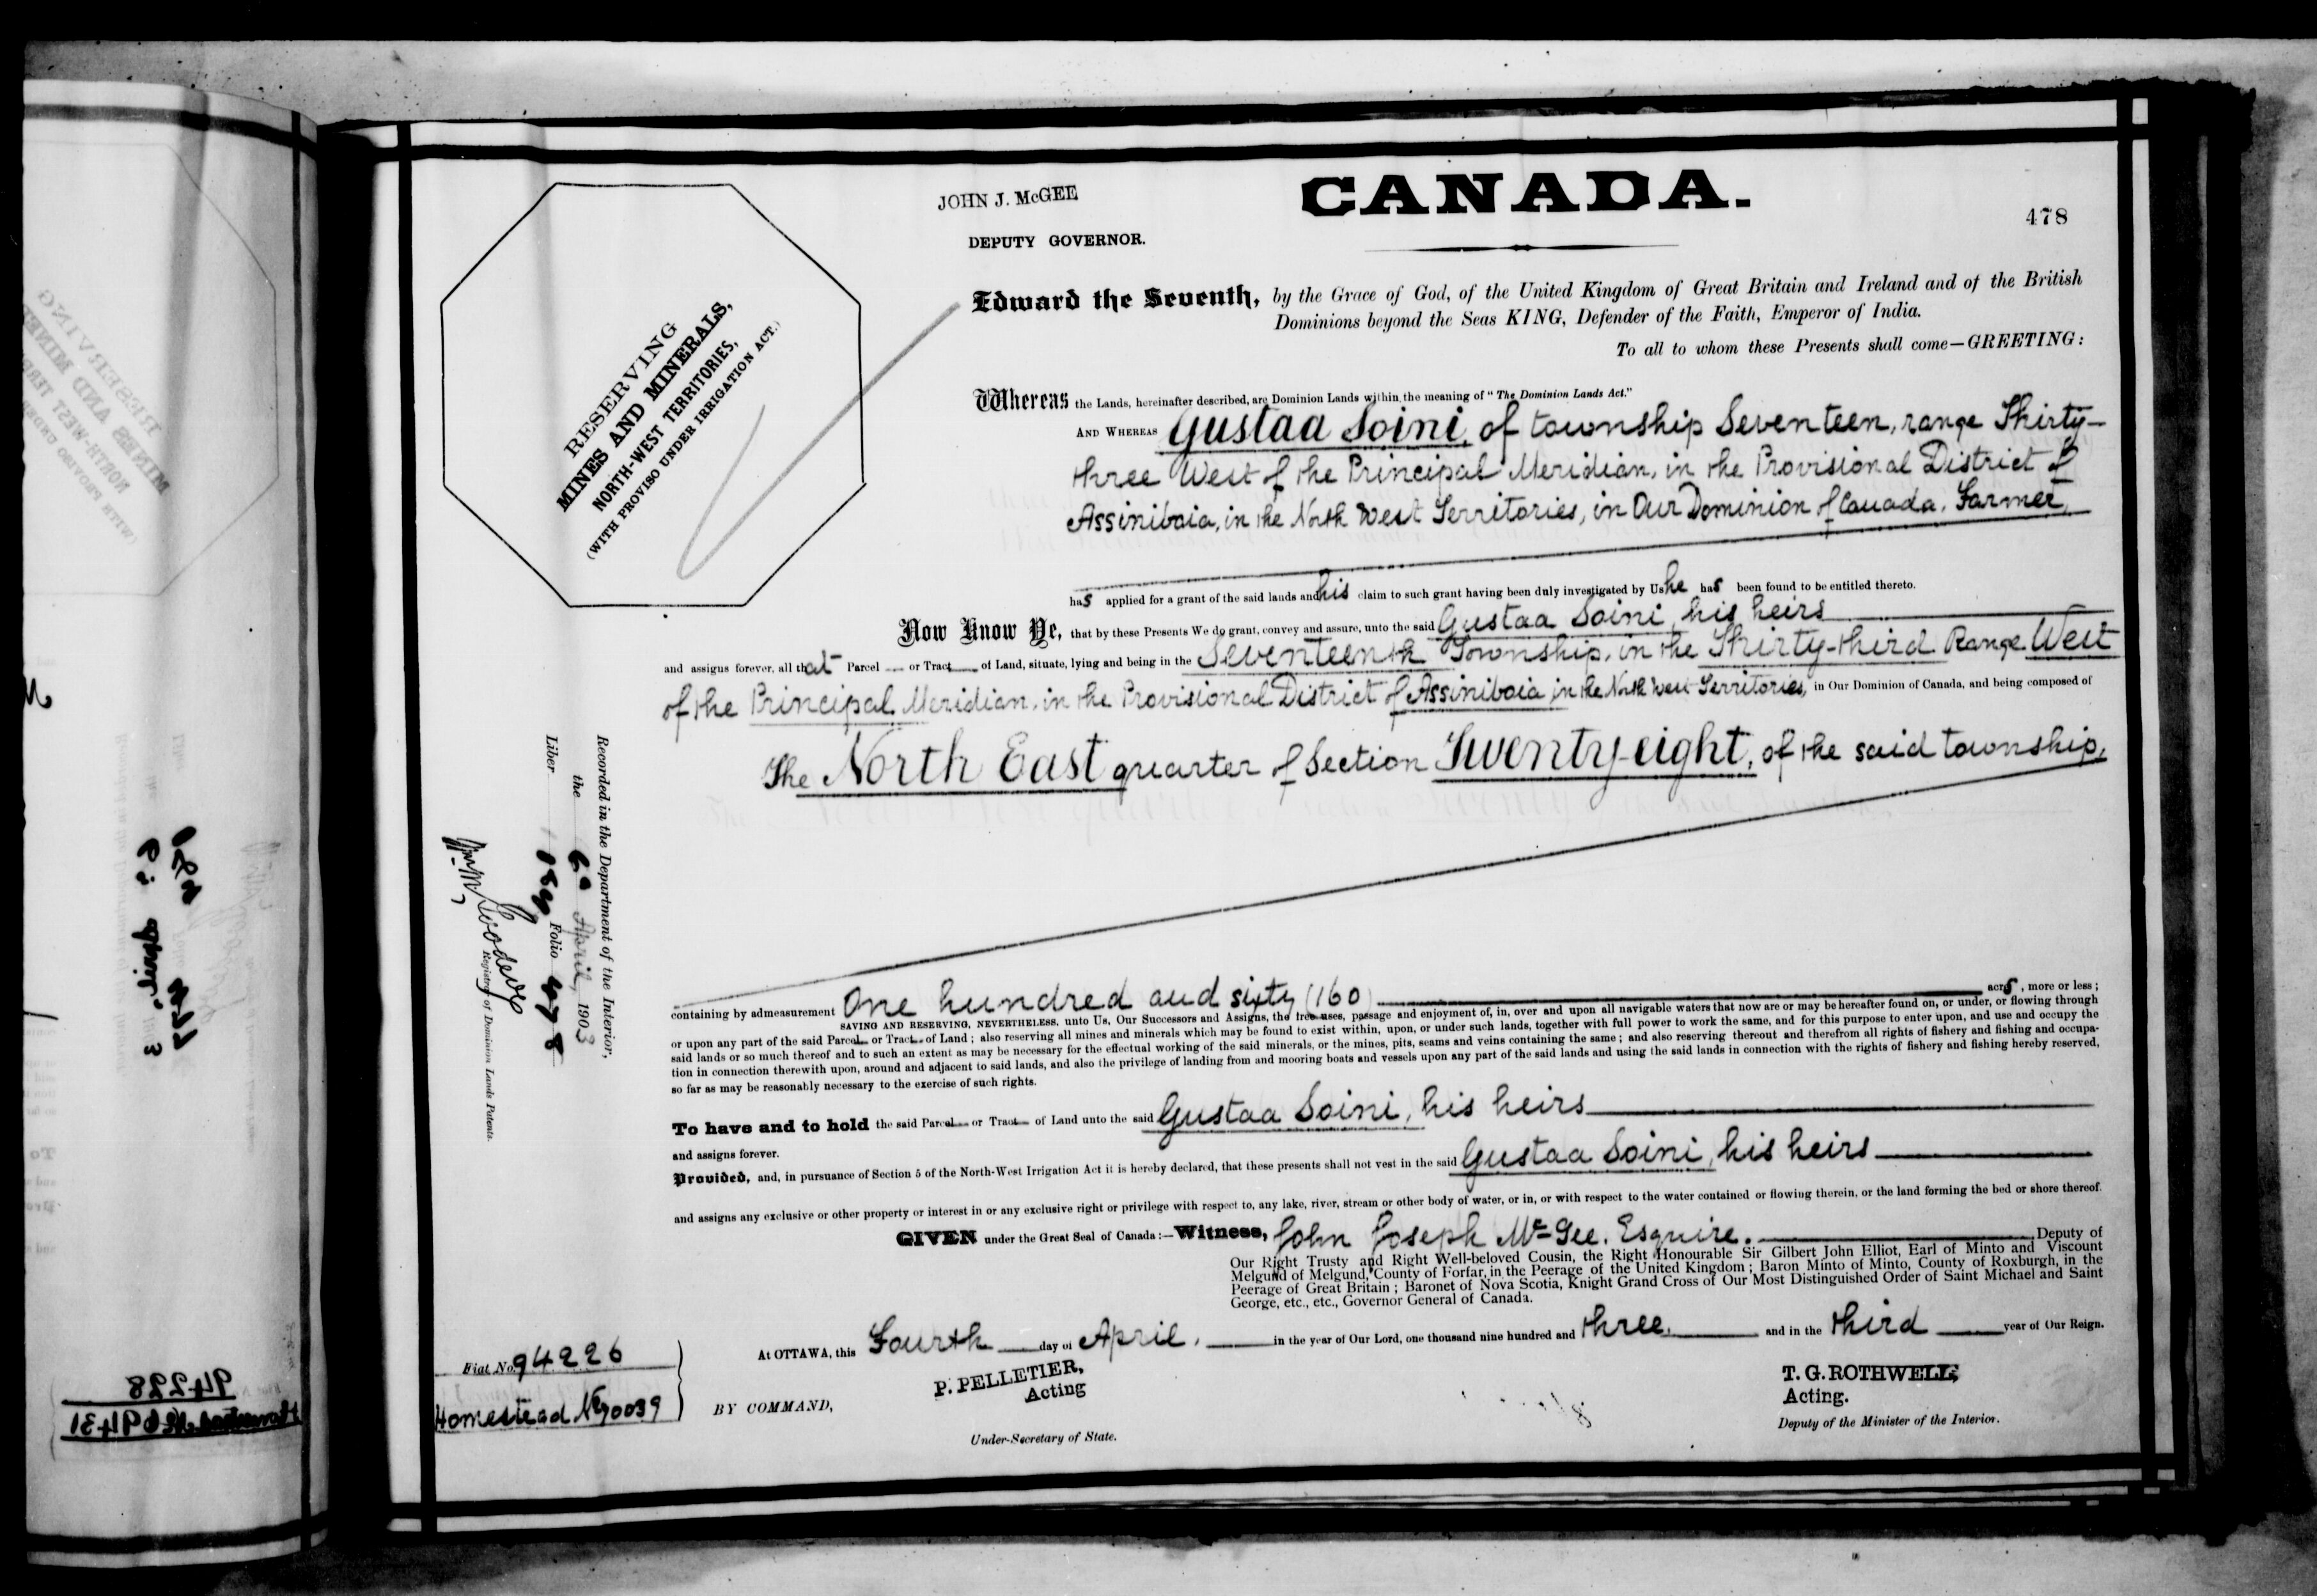 JOHN J. McGEE
DEPUTY GOVERNOR.
CANADA.
478
RESERVING
MINES AND MINERALS,
NORTH-WEST TERRITORIES,
(WITH PROVISO UNDER IRRIGATION ACT.)
Edward the Seventh, by the Grace of God, of the United Kingdom of Great Britain and Ireland and of the British
Dominions beyond the Seas KING, Defender of the Faith, Emperor of India.
To all to whom these Presents shall come—GREETING:
Whereas the Lands, hereinafter described, are Dominion Lands within the meaning of "The Dominion Lands Act."
AND WHEREAS Gustaa Soini, of township Seventeen, range Thirty-
three West of the Principal Meridian, in the Provisional District of
Assiniboia, in the North West Territories, in Our Dominion of Canada, Farmer,
has applied for a grant of the said lands and his claim to such grant having been duly investigated by Us he has been found to be entitled thereto.
Now Know Ye, that by these Presents We do grant, convey and assure, unto the said Gustaa Soini, his heirs
and assigns forever, all that Parcel or Tract of Land, situate, lying and being in the Seventeenth Township, in the Thirty-third Range West
of the Principal Meridian, in the Provisional District of Assiniboia in the North West Territories, in Our Dominion of Canada, and being composed of
The North East quarter of Section Twenty-eight, of the said township,
containing by admeasurement One hundred and sixty (160) acrs, more or less;
SAVING AND RESERVING, NEVERTHELESS, unto Us, Our Successors and Assigns, the free uses, passage and enjoyment of, in, over and upon all navigable waters that now are or may be hereafter found on, or under, or flowing through
or upon any part of the said Parcel or Tract of Land; also reserving all mines and minerals which may be found to exist within, upon, or under such lands, together with full power to work the same, and for this purpose to enter upon, and use and occupy the
said lands or so much thereof and to such an extent as may be necessary for the effectual working of the said minerals, or the mines, pits, seams and veins containing the same; and also reserving thereout and therefrom all rights of fishery and fishing and occupa-
tion in connection therewith upon, around and adjacent to said lands, and also the privilege of landing from and mooring boats and vessels upon any part of the said lands and using the said lands in connection with the rights of fishery and fishing hereby reserved,
so far as may be reasonably necessary to the exercise of such rights.
To have and to hold the said Parcel or Tract of Land unto the said Gustaa Soini, his heirs
and assigns forever.
Provided, and, in pursuance of Section 5 of the North-West Irrigation Act it is hereby declared, that these presents shall not vest in the said Gustaa Soini, his heirs
and assigns any exclusive or other property or interest in or any exclusive right or privilege with respect to, any lake, river, stream or other body of water, or in, or with respect to the water contained or flowing therein, or the land forming the bed or shore thereof.
GIVEN under the Great Seal of Canada:—Witness, John Joseph McGee, Esquire. Deputy of
Our Right Trusty and Right Well-beloved Cousin, the Right Honourable Sir Gilbert John Elliot, Earl of Minto and Viscount
Melgund of Melgund, County of Forfar, in the Peerage of the United Kingdom; Baron Minto of Minto, County of Roxburgh, in the
Peerage of Great Britain; Baronet of Nova Scotia, Knight Grand Cross of Our Most Distinguished Order of Saint Michael and Saint
George, etc., etc., Governor General of Canada.
At OTTAWA, this Fourth day of April, in the year of Our Lord, one thousand nine hundred and three, and in the third year of Our Reign.
BY COMMAND,
P. PELLETIER,
Acting
Under-Secretary of State.
T. G. ROTHWELL,
Acting.
Deputy of the Minister of the Interior.
Fiat No. 94226
Homestead No 90039
Recorded in the Department of the Interior,
the 6th April, 1903
Liber 189 Folio 478
Registrar of Dominion Lands Patents.
94228